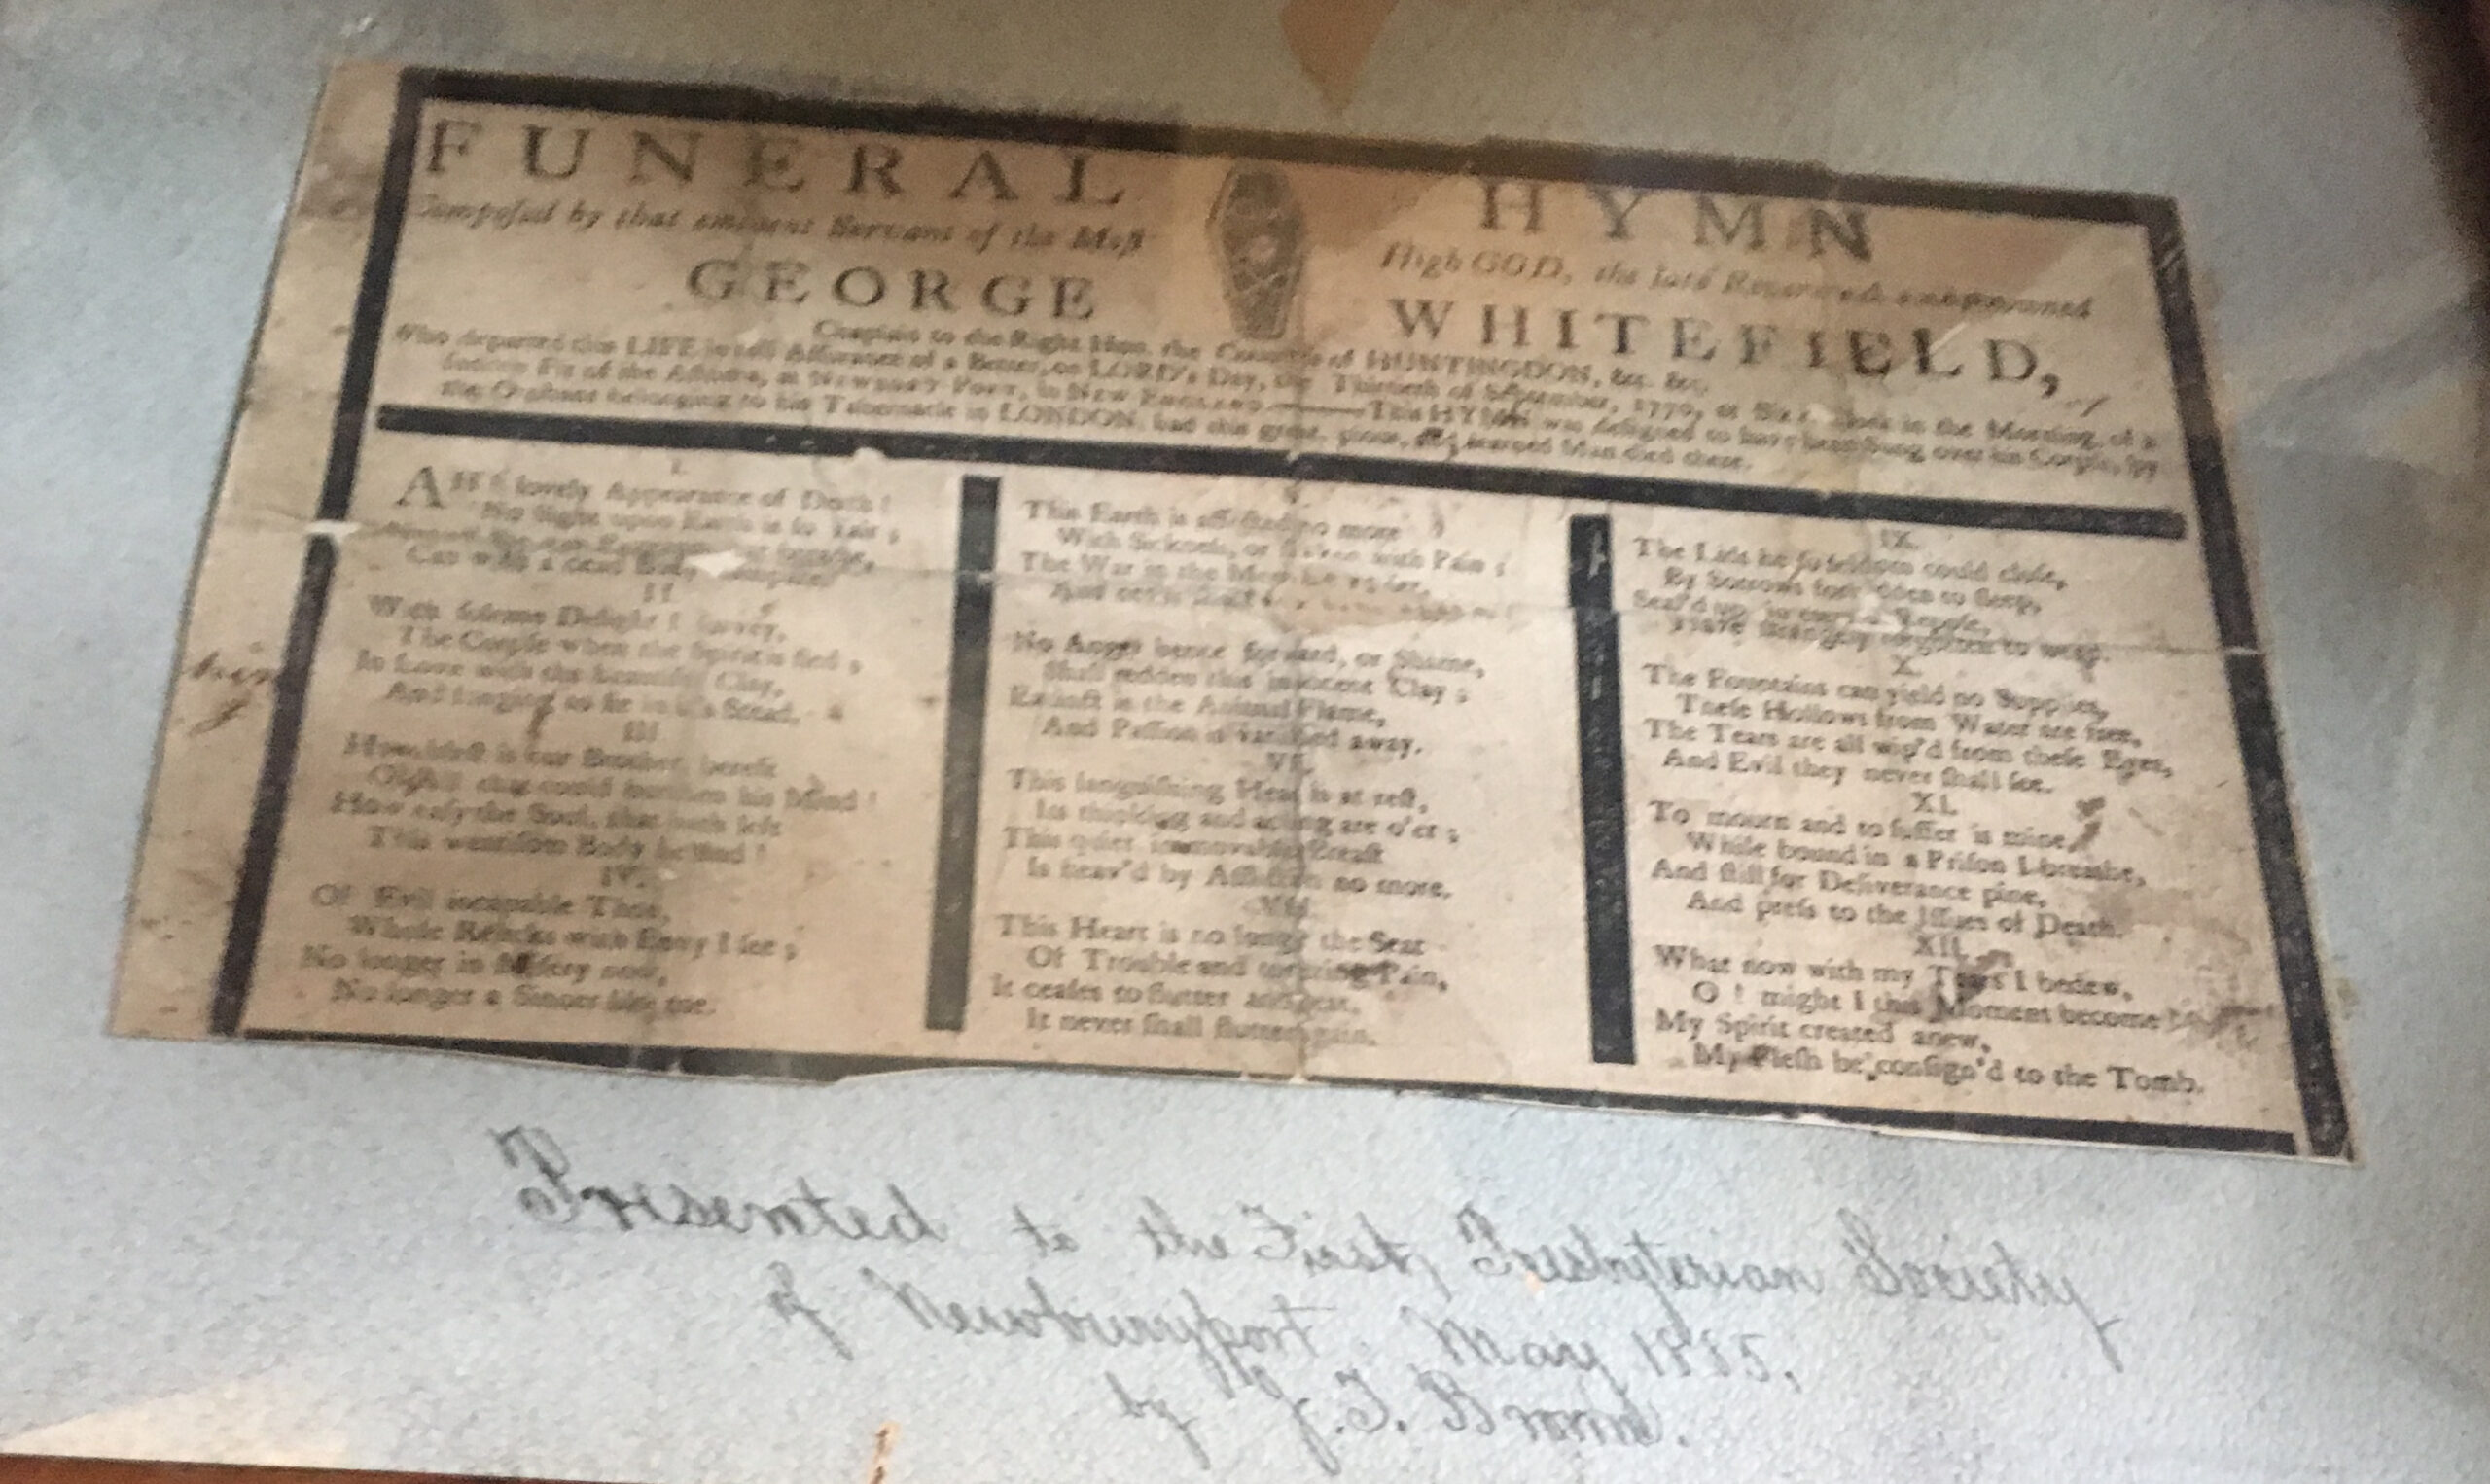 FUNERAL HYMN
Composed by that eminent Servant of the Most High GOD, the late Reverend and renowned
GEORGE WHITEFIELD,
Chaplain to the Right Hon. the Countess of HUNTINGDON, &c. &c.
Who departed this LIFE in full Assurance of a Better, on LORD's Day, the Thirtieth of September, 1770, at Six o'Clock in the Morning, of a
sudden Fit of the Asthma, at NEWBURY PORT, in NEW ENGLAND. ——— This HYMN was designed to have been sung over his Corpse, by
the Orphans belonging to his Tabernacle in LONDON, had this great, pious, and learned Man died there.
I.
AH! lovely Appearance of Death!
No Sight upon Earth is so fair;
Can with a dead Body compare.
II.
With solemn Delight I survey,
The Corpse when the Spirit is fled,
In Love with the beautiful Clay,
And longing to lie in its Stead.
III.
How blest is our Brother, bereft
Of all that could burthen his Mind!
How easy the Soul, that hath left
This wearisom Body behind!
IV.
Of Evil incapable Thou,
Whose Relicks with Envy I see;
No longer in Misery now,
No longer a Sinner like me.
V.
This Earth is affected no more
With Sickness, or shaken with Pain;
The War in the Members
No Anger hence forward, or Shame,
Shall redden this innocent Clay;
Extinct is the Animal Flame,
And Passion is vanished away.
VII.
This languishing Head is at rest,
Its thinking and acting are o'er;
This quiet immovable Breast
Is heav'd by Affliction no more.
VIII.
This Heart is no longer the Seat
Of Trouble and torturing Pain,
It ceases to flutter and beat,
It never shall flutter again.
IX.
The Lids he so seldom could close,
By Sorrows forbidden to sleep,
Seal'd up in eternal Repose,
Have strangely forgotten to weep.
X.
The Fountains can yield no Supplies,
These Hollows from Water are free,
The Tears are all wip'd from these Eyes,
And Evil they never shall see.
XI.
To mourn and to suffer is mine,
While bound in a Prison I breathe,
And still for Deliverance pine,
And press to the Issues of Death.
XII.
What now with my Tears I bedew,
O! might I this Moment become
My Spirit created anew,
My Flesh be consign'd to the Tomb.
Presented to the First Presbyterian Society
of Newburyport May 1885,
by J.T. Brown.